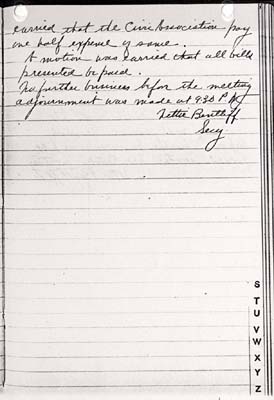 carried that the Civic Association pay
one half expense of same.
A motion was carried that all bills
presented be paid.
No further business before the meeting
adjournment was made at 9:30 P.M.
Nettie
Secy
S
T
U
V
W
X
Y
Z